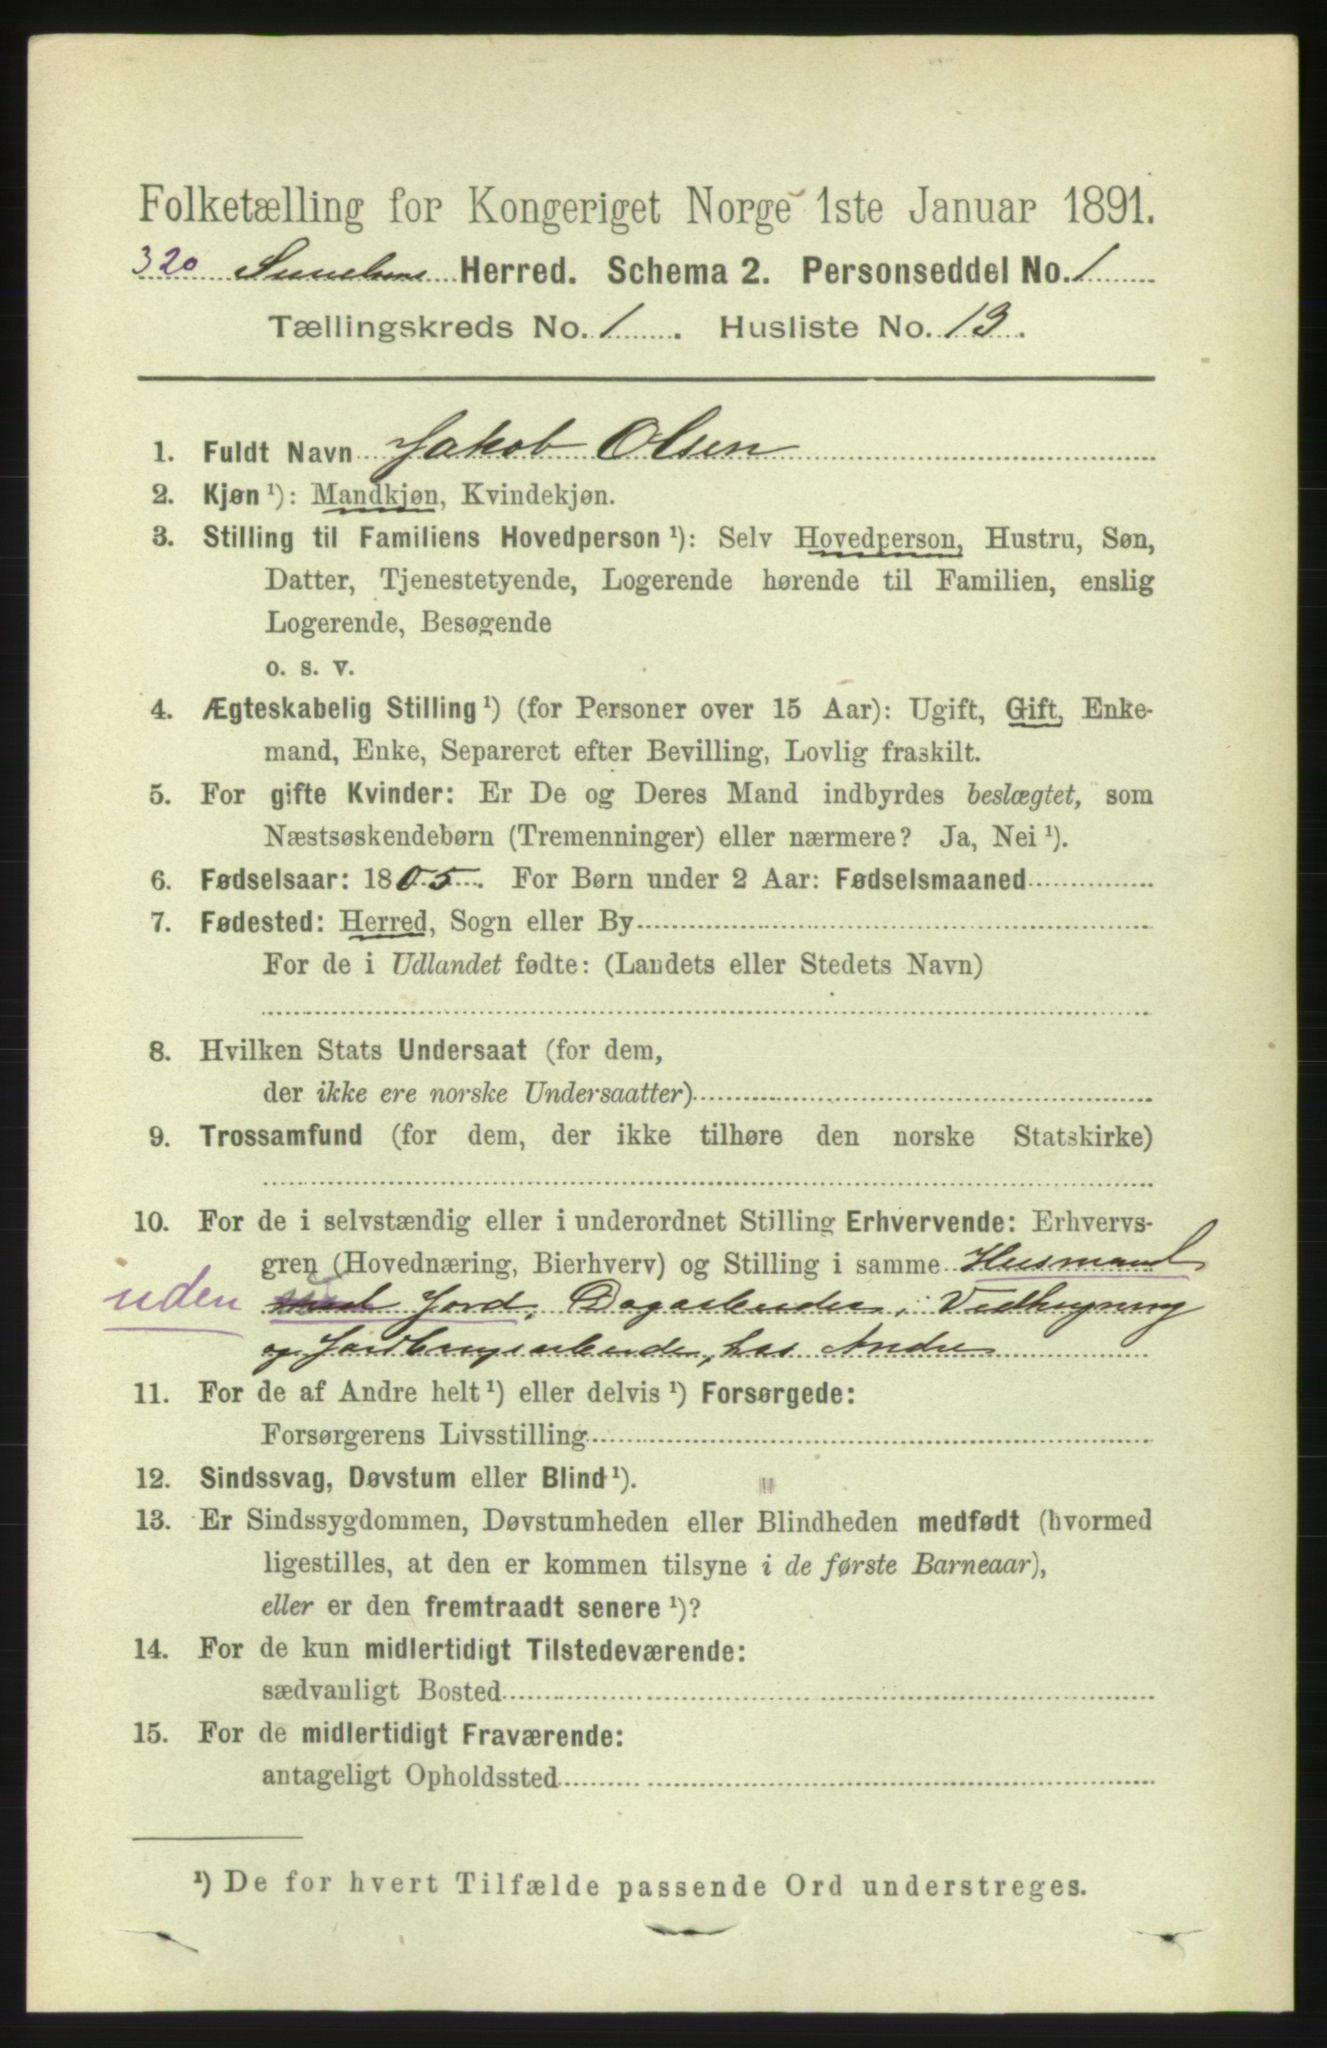 Folketælling for Kongeriget Norge 1ste Januar 1891.
320 Herred. Schema 2. Personseddel No. 1
Tællingskreds No. 1. Husliste No. 13.
1. Fuldt Navn Jakob Olsen
2. Kjøn ¹): Mandkjøn, Kvindekjøn.
3. Stilling til Familiens Hovedperson ¹): Selv Hovedperson, Hustru, Søn,
Datter, Tjenestetyende, Logerende hørende til Familien, enslig
Logerende, Besøgende
o. s. v.
4. Ægteskabelig Stilling ¹) (for Personer over 15 Aar): Ugift, Gift, Enke-
mand, Enke, Separeret efter Bevilling, Lovlig fraskilt.
5. For gifte Kvinder: Er De og Deres Mand indbyrdes beslægtet, som
Næstsøskendebørn (Tremenninger) eller nærmere? Ja, Nei ¹).
6. Fødselsaar: 1805. For Børn under 2 Aar: Fødselsmaaned
7. Fødested: Herred, Sogn eller By
For de i Udlandet fødte: (Landets eller Stedets Navn)
8. Hvilken Stats Undersaat (for dem,
der ikke ere norske Undersaatter)
9. Trossamfund (for dem, der ikke tilhøre den norske Statskirke)
10. For de i selvstændig eller i underordnet Stilling Erhvervende: Erhvervs-
gren (Hovednæring, Bierhverv) og Stilling i samme Husmand
uden med Jord, Dagarbeider, Vedhugning
og Jordbrugsarbeider, hos Andre
11. For de af Andre helt ¹) eller delvis ¹) Forsørgede:
Forsørgerens Livsstilling
12. Sindssvag, Døvstum eller Blind ¹).
13. Er Sindssygdommen, Døvstumheden eller Blindheden medfødt (hvormed
ligestilles, at den er kommen tilsyne i de første Barneaar),
eller er den fremtraadt senere ¹)?
14. For de kun midlertidigt Tilstedeværende:
sædvanligt Bosted
15. For de midlertidigt Fraværende:
antageligt Opholdssted
¹) De for hvert Tilfælde passende Ord understreges.